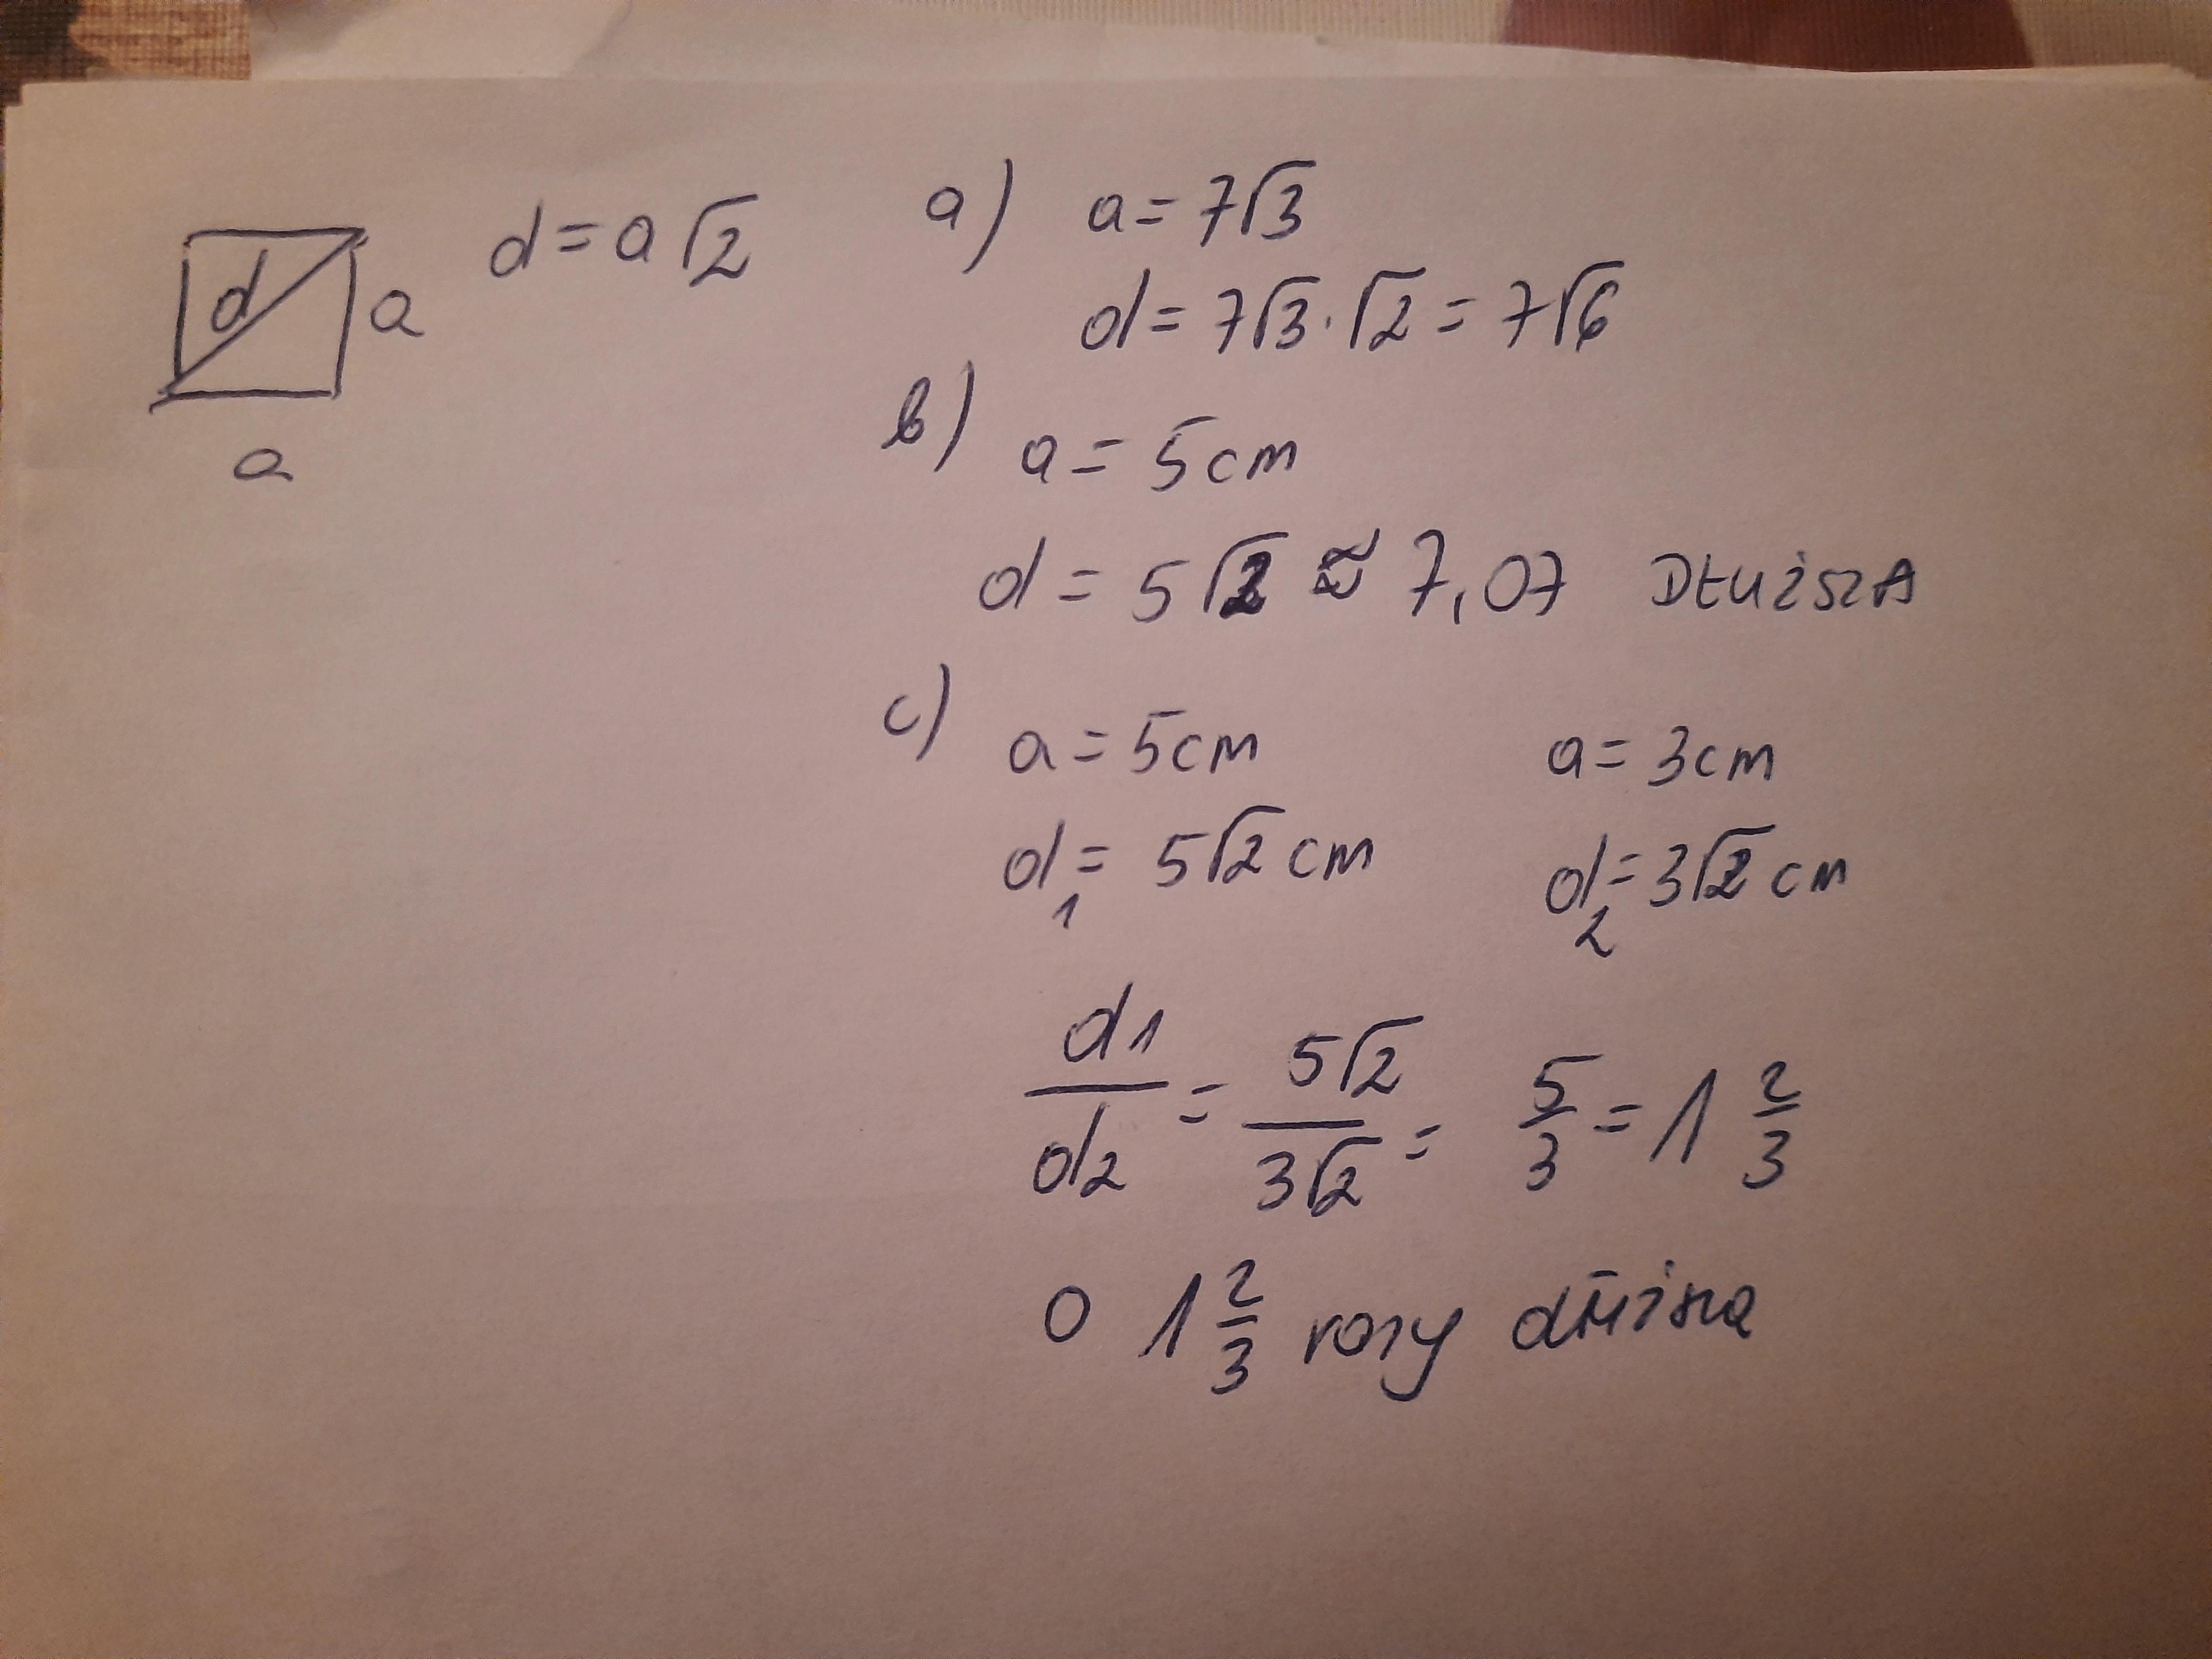 d
a
a
d = a√2
a) a = 7√3
d = 7√3 · √2 = 7√6
b) a = 5 cm
d = 5√2 ≈ 7,07 DŁUŻSZA
c) a = 5 cm a = 3 cm
d₁ = 5√2 cm d₂ = 3√2 cm
d1/d2 = 5√2/3√2 = 5/3 = 1 2/3
O 1 2/3 razy dłuższa